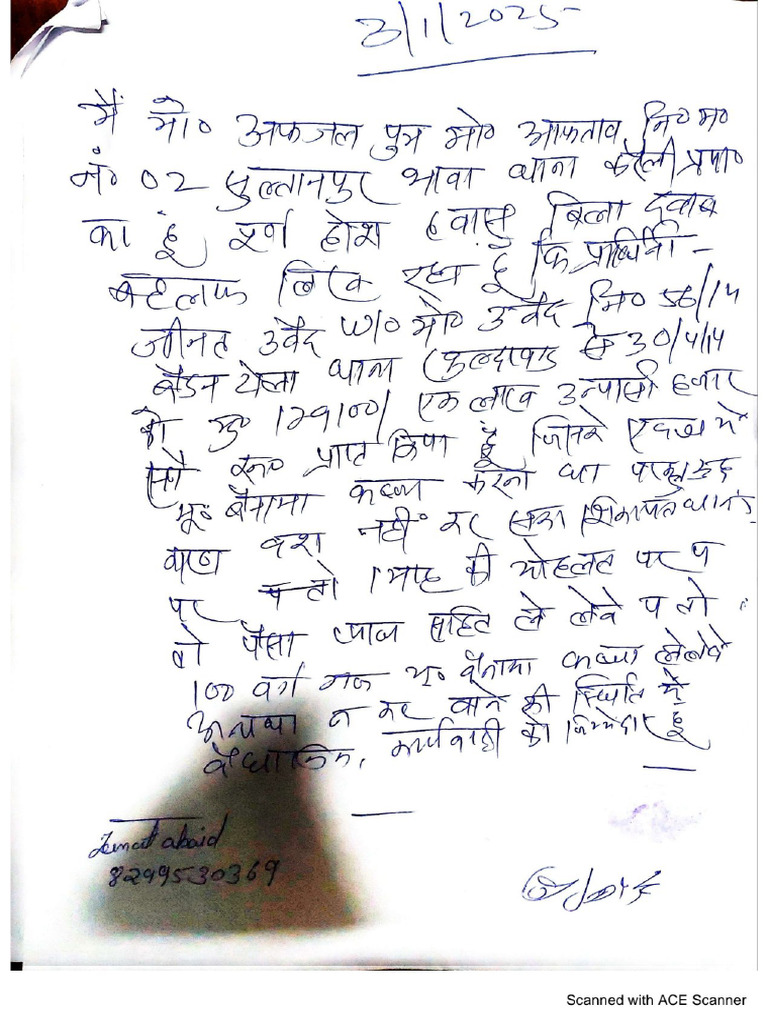 3/1/2025
मैं मो० अफजल पुत्र मो० आफताब नि० म०
नं० 02 सुल्तानपुर भावा थाना करेली प्रया०
का हूं पूर्ण होश हवास बिला दबाब
बहलफ लिख रहा हूं कि प्रार्थिनी -
जीनत उवैद w/o मो० उवैद नि० 56/14
बैडन टोला थाना खुल्दाबाद से 30/4/14
को मु० 179100/ एक लाख उन्यासी हजार
सौ रू० प्राप्त किया हूं जिसके एवज मे
भू० बैनामा कब्जा करना था परन्तु कुछ
कारण वश नहीं कर सका शिकायत थाने
पर तो 1 माह की मोहलत पर य
तो पैसा ब्याज सहित ले लेवे य तो
100 वर्ग गज भू० बैनामा कब्जा लेलेवे
अन्यथा न कर पाने की स्थिति मे
वैधानिक कार्यवाही का जिम्मेदार हूं
Zeenat abaid
8299530369
Scanned with ACE Scanner